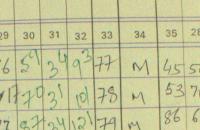 29 30 31 32 33 34 35 28
6 59 34 93 77 M 45 5
17 70 31 101 78 M 53 7
87 34 121 79 M 86 6